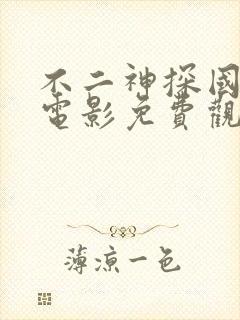 不二神探國
電影免費觀
薄涼一色